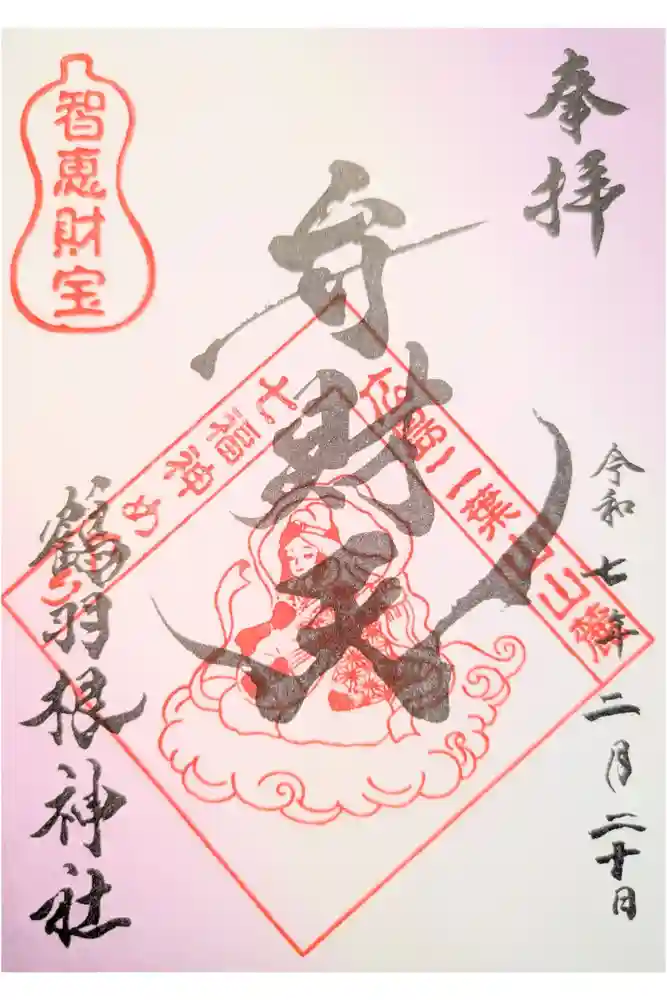 奉拝
令和七年二月二十日
弁財天
智恵財宝
七福神めぐり
二葉山山麓
鶴羽根神社